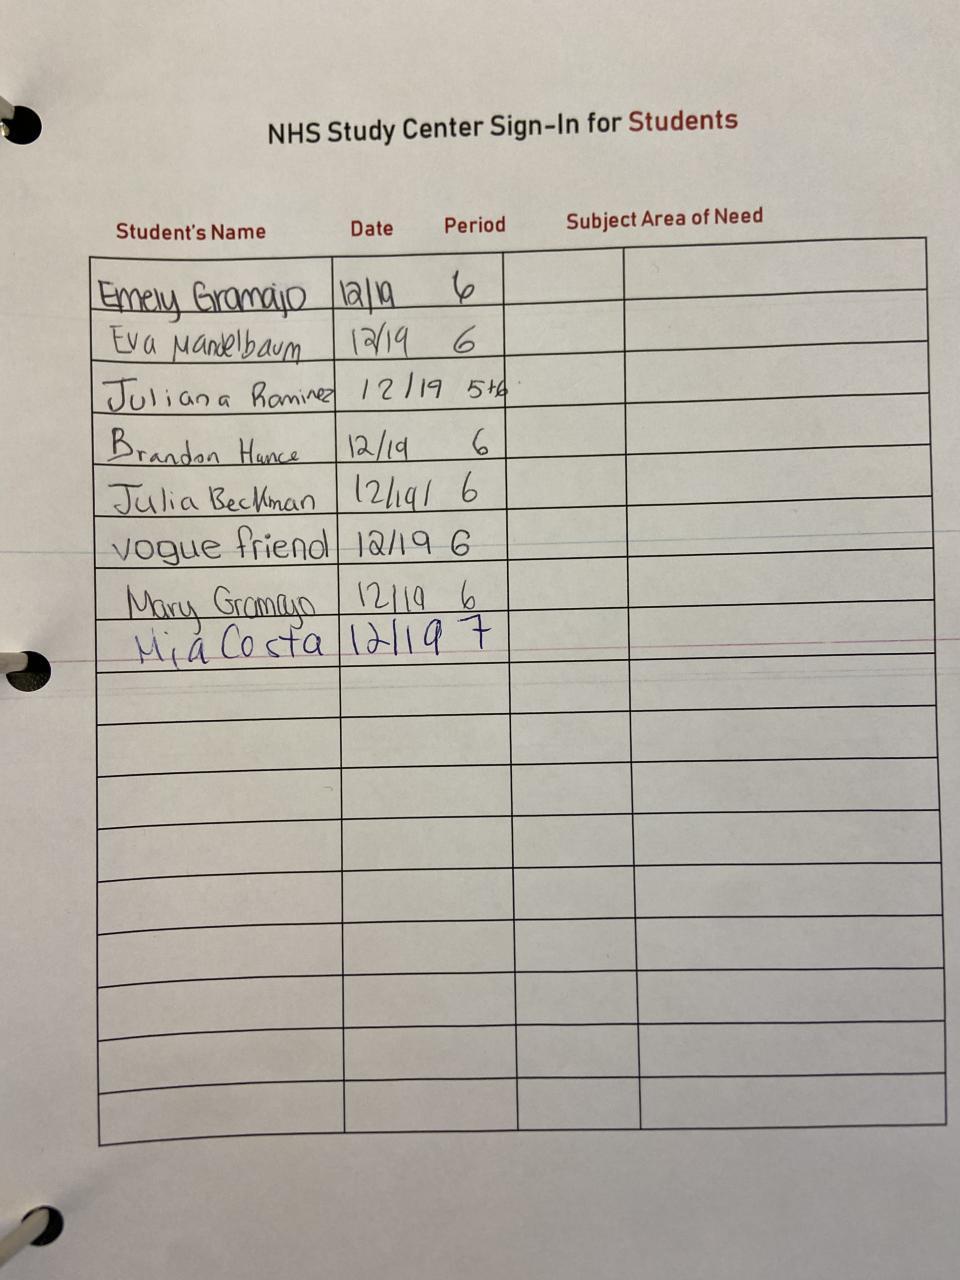 NHS Study Center Sign-In for Students
Student's Name Date Period Subject Area of Need
Emely Gramajo 12/19 6
Eva Mandelbaum 12/19 6
Juliana Ramirez 12/19 5+6
Brandon Hance 12/19 6
Julia Beckman 12/19/ 6
vogue friend 12/19 6
Mary Gramajo 12/19 6
Mia Costa 12/19 7